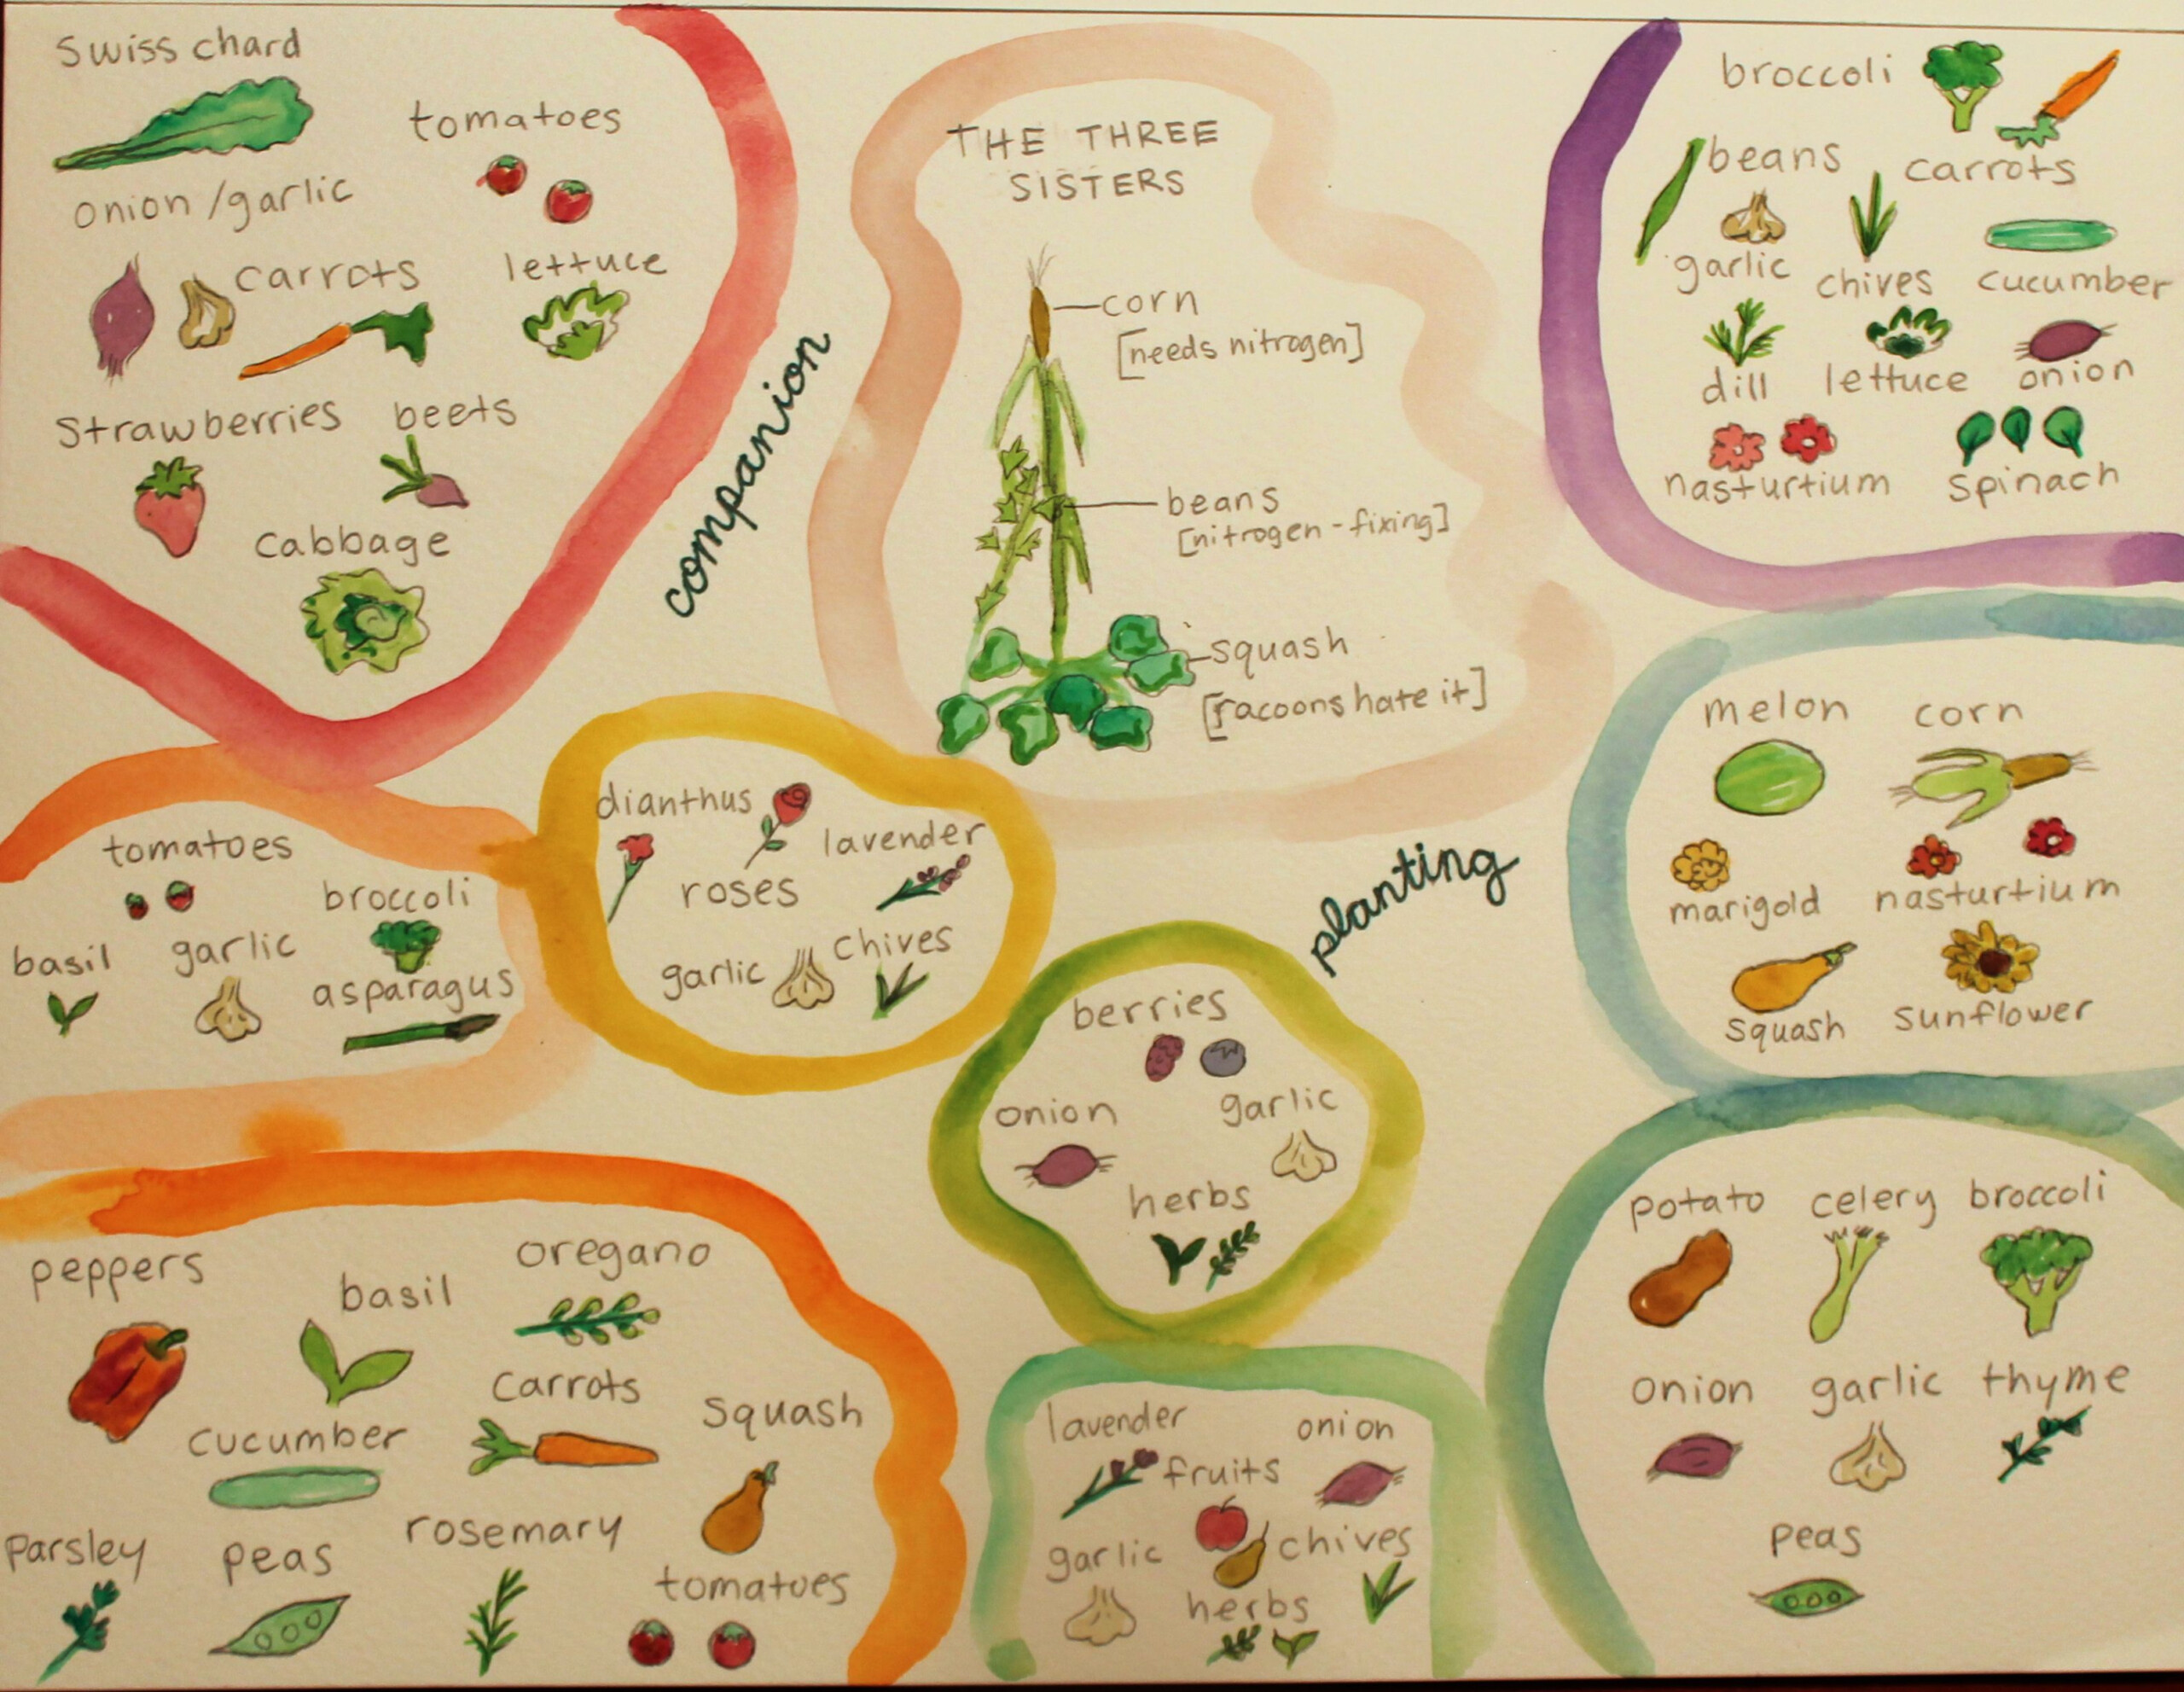 Swiss chard
tomatoes
onion/garlic
carrots
lettuce
Strawberries
beets
cabbage
companion
THE THREE
SISTERS
corn
[needs nitrogen]
beans
[nitrogen-fixing]
squash
[racoons hate it]
broccoli
beans
carrots
garlic
chives
cucumber
dill
lettuce
onion
nasturtium
spinach
tomatoes
broccoli
basil
garlic
asparagus
dianthus
lavender
roses
garlic
chives
planting
melon
corn
marigold
nasturtium
squash
sunflower
berries
onion
garlic
herbs
peppers
basil
oregano
carrots
cucumber
squash
parsley
peas
rosemary
tomatoes
lavender
onion
fruits
garlic
chives
herbs
potato
celery
broccoli
onion
garlic
thyme
peas